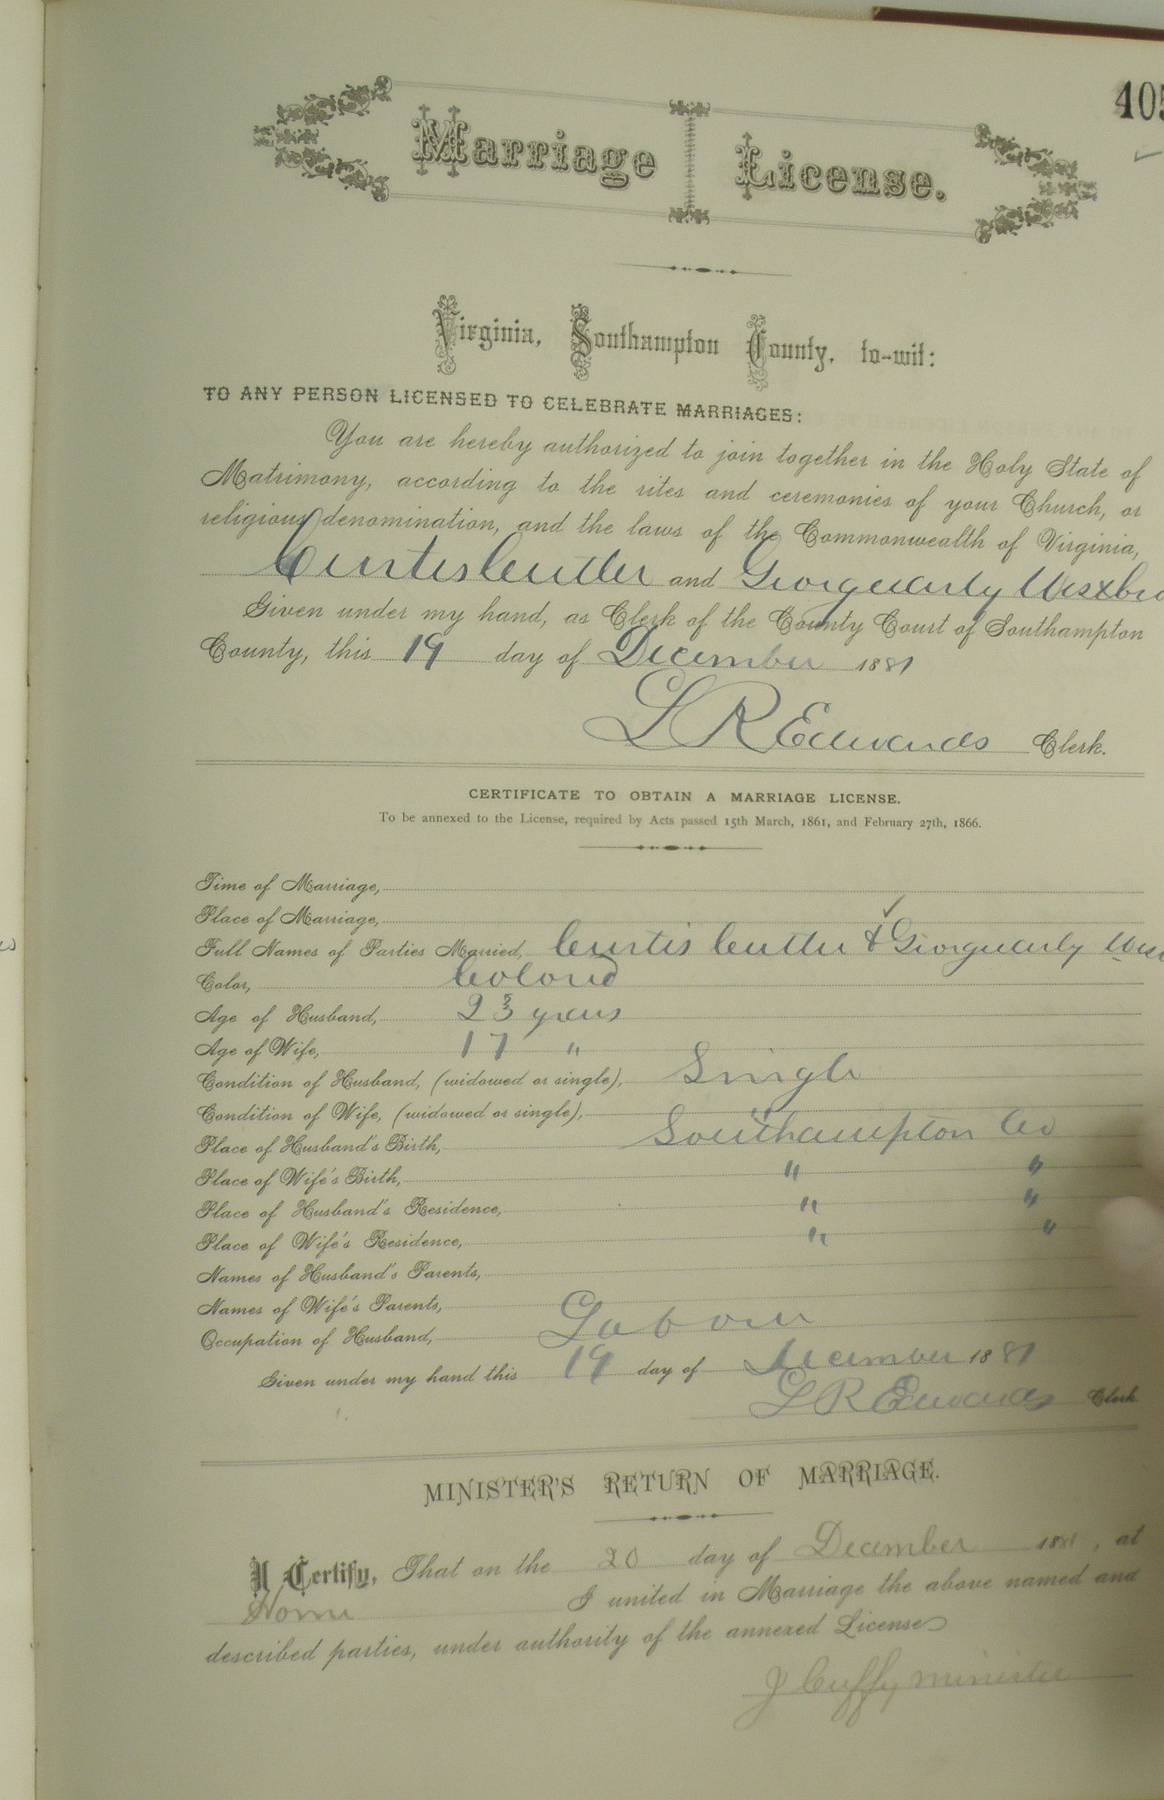 405
Marriage License.
Virginia, Southampton County, to-wit:
TO ANY PERSON LICENSED TO CELEBRATE MARRIAGES:
You are hereby authorized to join together in the Holy State of
Matrimony, according to the rites and ceremonies of your Church, or
religious denomination, and the laws of the Commonwealth of Virginia,
Curtis Cutler and
Given under my hand, as Clerk of the County Court of Southampton
County, this 19 day of December 1881
L R Edwards Clerk.
CERTIFICATE TO OBTAIN A MARRIAGE LICENSE.
To be annexed to the License, required by Acts passed 15th March, 1861, and February 27th, 1866.
Time of Marriage,
Place of Marriage,
Full Names of Parties Married, Curtis Cutler &
Color, Colored
Age of Husband, 23 years
Age of Wife, 17 "
Condition of Husband, (widowed or single), Single
Condition of Wife, (widowed or single), "
Place of Husband's Birth, Southampton Co
Place of Wife's Birth, " "
Place of Husband's Residence, " "
Place of Wife's Residence, " "
Names of Husband's Parents,
Names of Wife's Parents,
Occupation of Husband, Laborer
Given under my hand this 19 day of December 1881
L R Edwards Clerk
MINISTER'S RETURN OF MARRIAGE.
I Certify, That on the 20 day of December 1881, at
Home I united in Marriage the above named and
described parties, under authority of the annexed License
J Cuffy minister